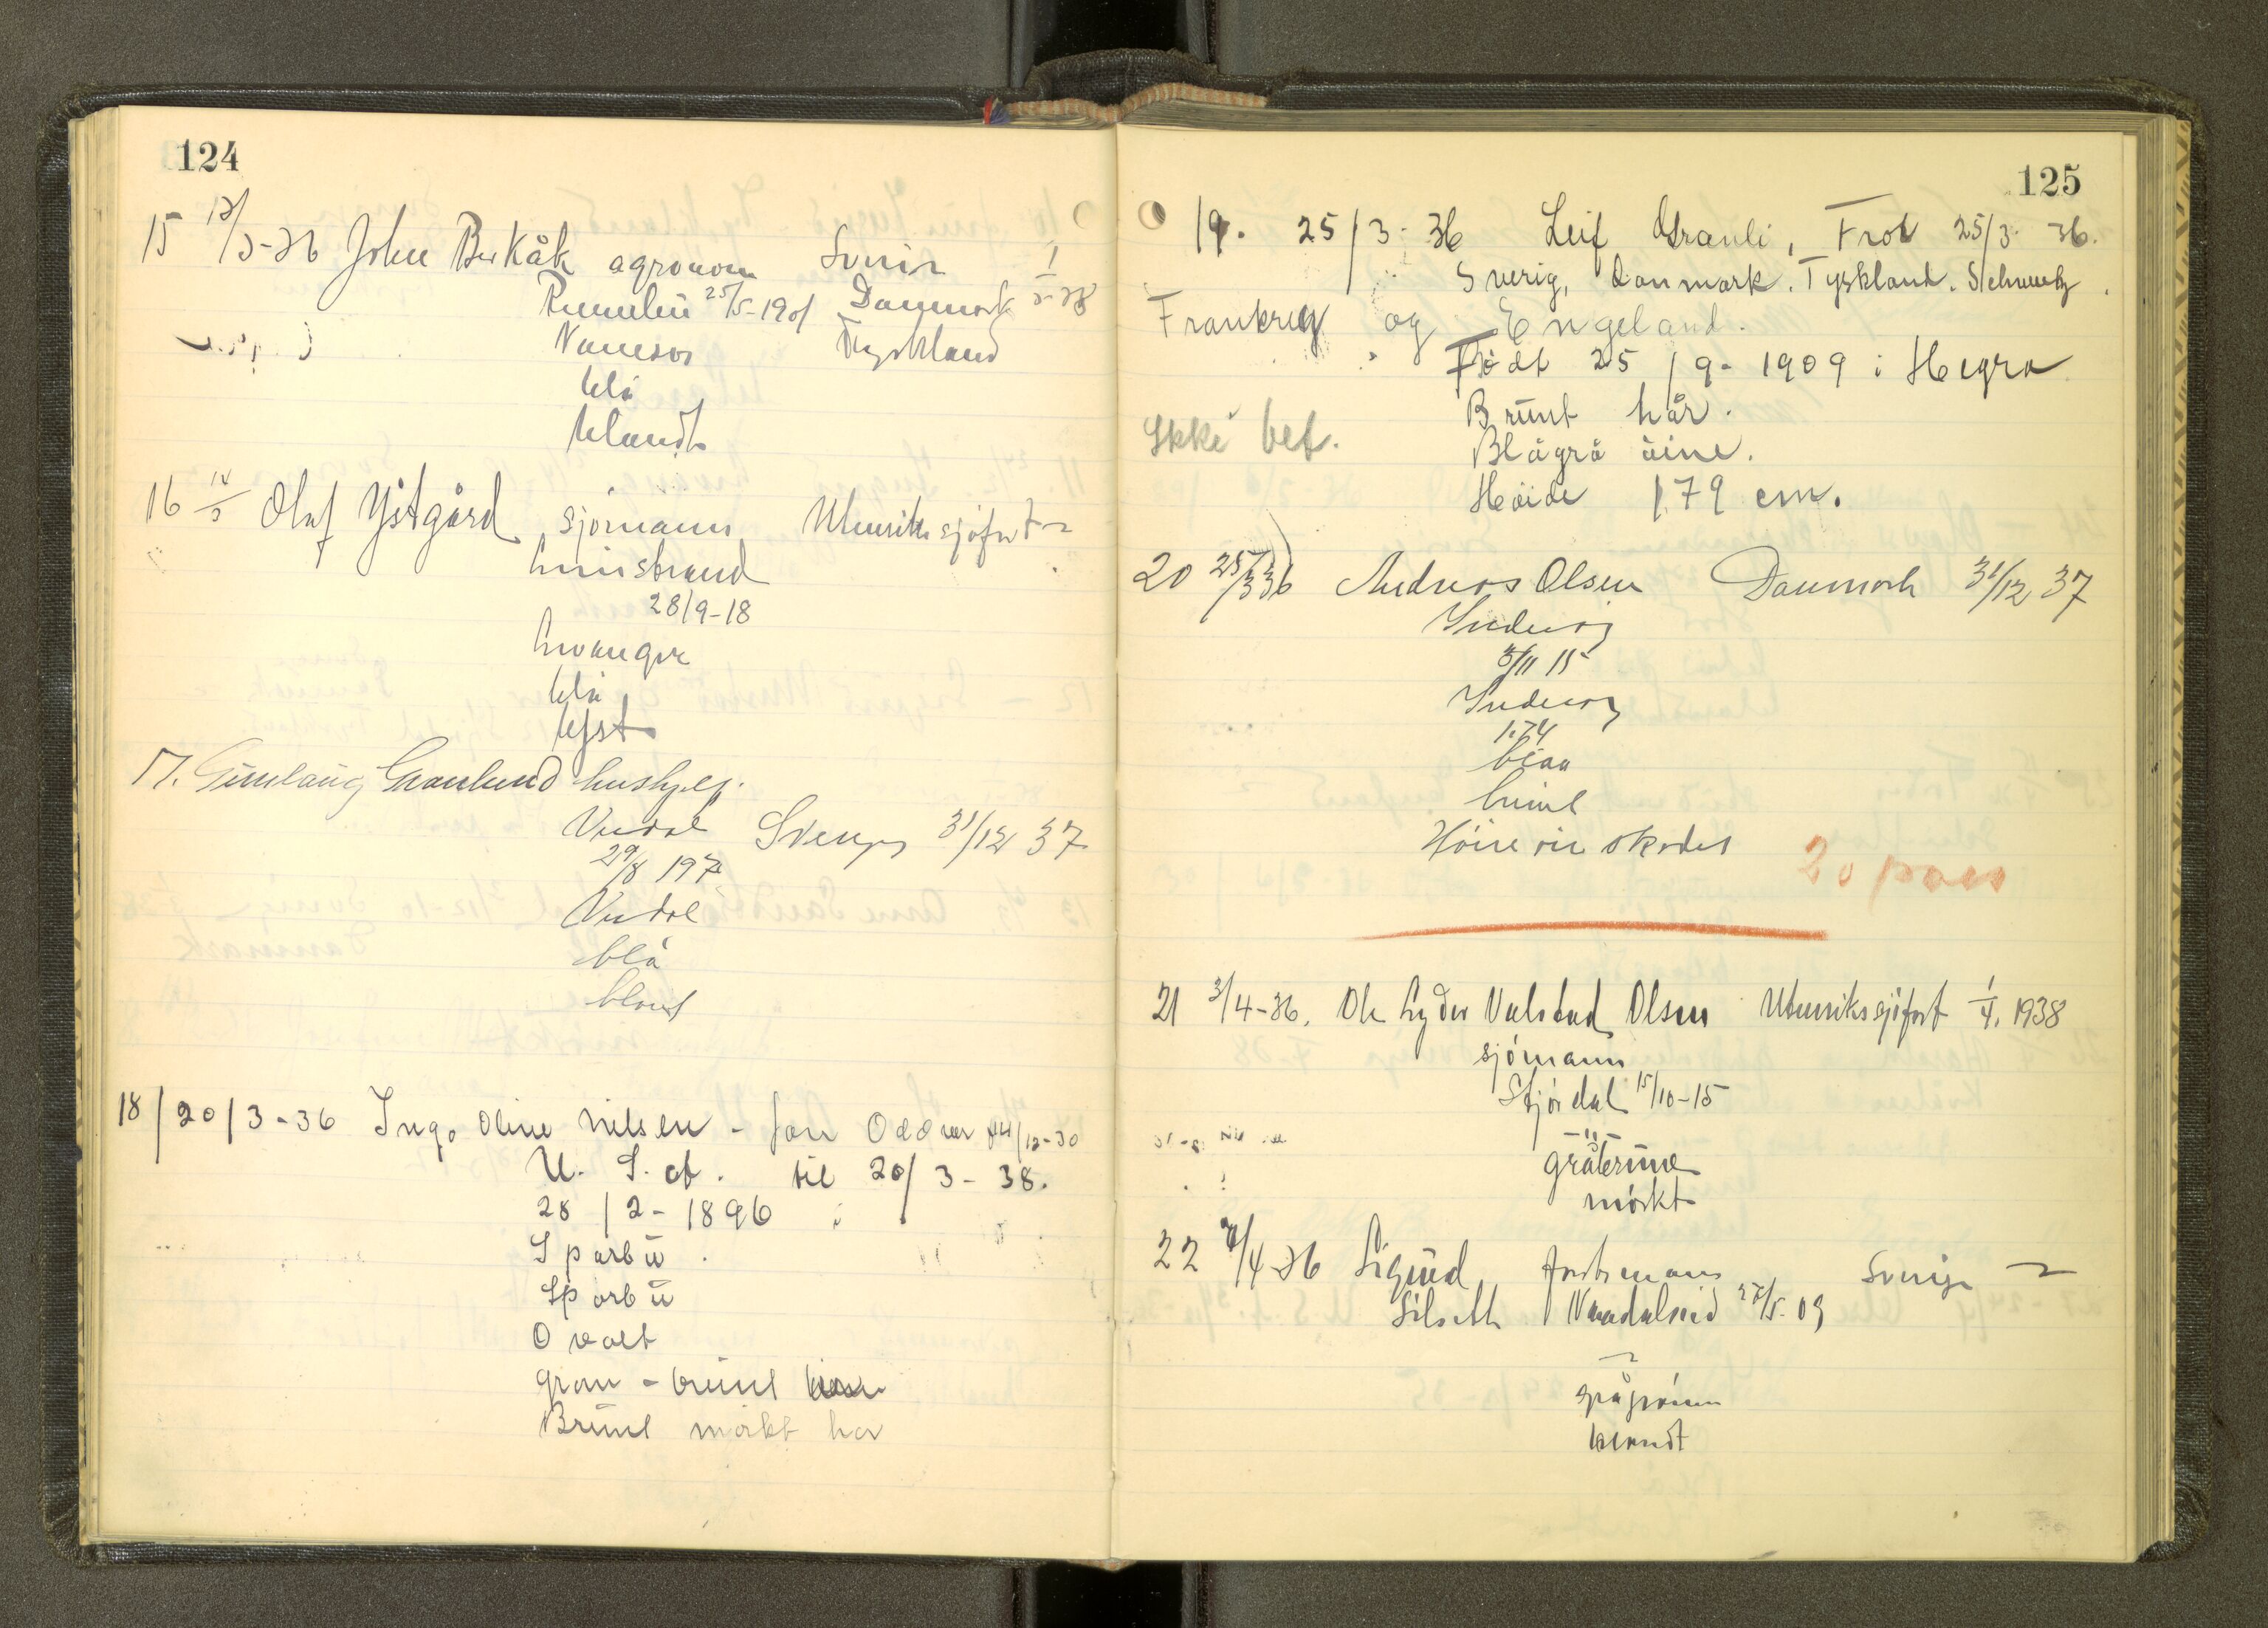 124
15 12/3-36 John Berkåk agronom Sverige 1
25/5-1901 Danmark 3-38
Namsos Tyskland
blå
blondt
16 14/3 Olaf Ystgård sjømann Utenrikssjøfart
28/9-18
Levanger
blå
lyst
17. Gunlaug Granlund hushjelp.
Verdal Sverige 31/12 37
29/8 197
Verdal
blå
blont
18/20/3-36 Inga Oline Nilsen - Jon Oddvar 14/12-30
U. S. of. til 20/3-38.
28/2-1896
Sparbu
Sparbu
Ovalt
grau-brunt
Brunt mørkt hår
125
19. 25/3-36 Leif Granli, Frol 25/3-36.
Sverig, Danmark. Tyskland. Schweitz.
Frankrig og Engeland.
Født 25/9-1909 i Hegra
Brunt hår.
Ikke bet.
Blågrå öine.
Höide 179 cm.
20 25/3 36 Andreas Olsen Danmark 31/12 37
Inderøy
5/11 15
Inderøy
1.74
blaa
brunt
Höire øie skadet
20 pass
21 3/4-36. Ole Lyder Valstad Olsen Utenrikssjøfart 1/4. 1938
sjømann
Stjørdal 15/10-15
-"-
gråbrune
mørkt
22 7/4-36 Sigurd Forstmann Sverige
Namdalseid 27/5-09
grågrønn
blondt